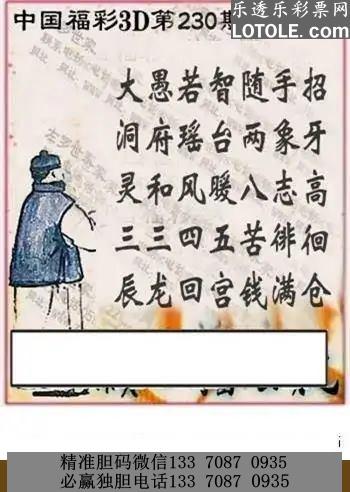 中国福彩3D第230期
乐透乐彩票网
LOTOLE.com
大愚若智随手招
洞府瑶台两象牙
灵和风暖八志高
三三四五苦徘徊
辰龙回宫钱满仓
精准胆码微信133 7087 0935
必赢独胆电话133 7087 0935